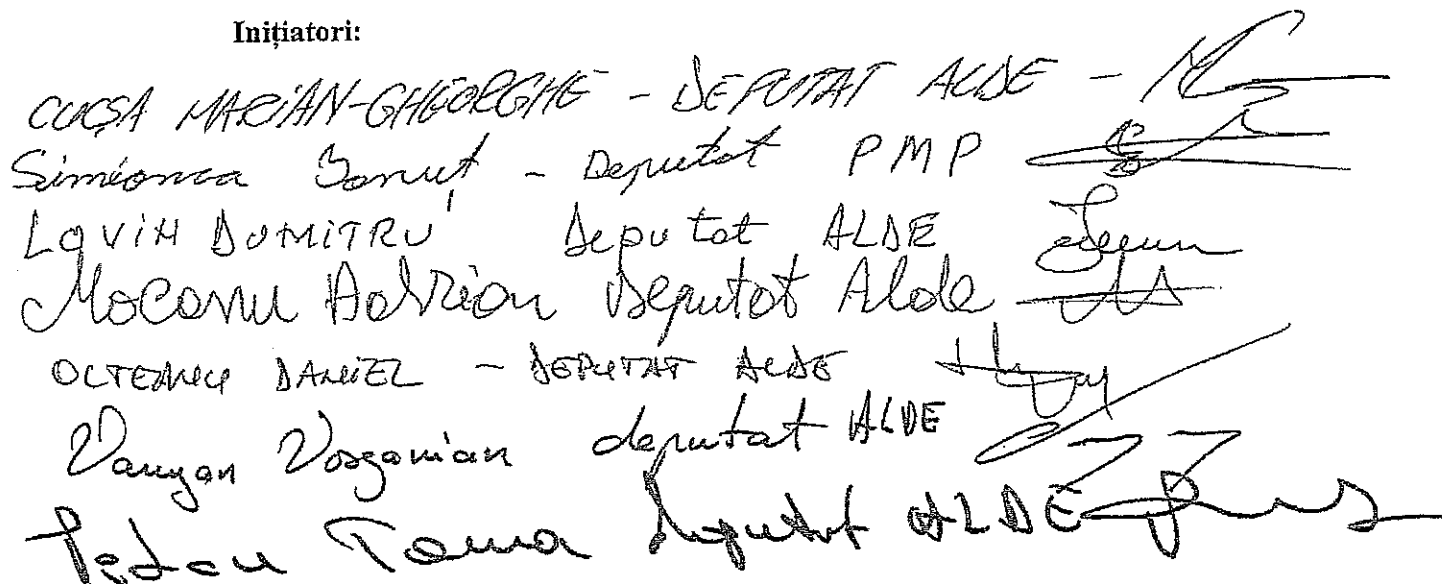 Inițiatori:
CUCȘA MARIAN-GHEORGHE - DEPUTAT ALDE -
Simionca Ionuț - Deputat PMP
LOVIN DUMITRU Deputat ALDE
Mocanu Adrian Deputat Alde
OLTEANU DANIEL - DEPUTAT ALDE
Varujan Vosganian deputat ALDE
Toma deputat ALDE